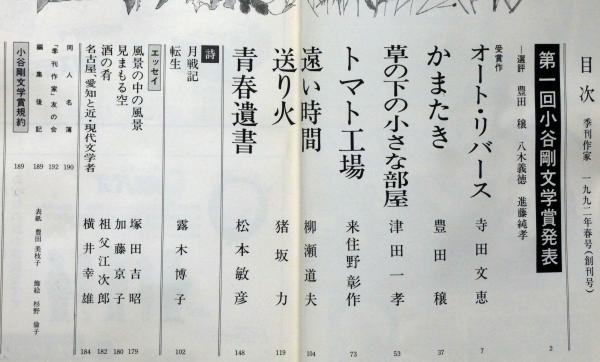 目次 季刊作家 一九九二年春号(創刊号)
第一回小谷剛文学賞発表 2
―選評 豊田穣 八木義徳 進藤純孝
受賞作
オート・リバース 寺田文恵 7
かまたき 豊田穣 37
草の下の小さな部屋 津田一孝 53
トマト工場 来住野彰作 73
遠い時間 柳瀬道夫 104
送り火 猪坂力 119
青春遺書 松本敏彦 148
詩
月戦記
転生 露木博子 102
エッセイ
風景の中の風景 塚田吉昭 179
見まもる空 加藤京子 180
酒の肴 祖父江次郎 182
名古屋、愛知と近・現代文学者 横井幸雄 184
同人名簿 190
「季刊作家」友の会 192
編集後記 189
小谷剛文学賞規約 189
表紙 豊田美枝子 飾絵 杉野倫子